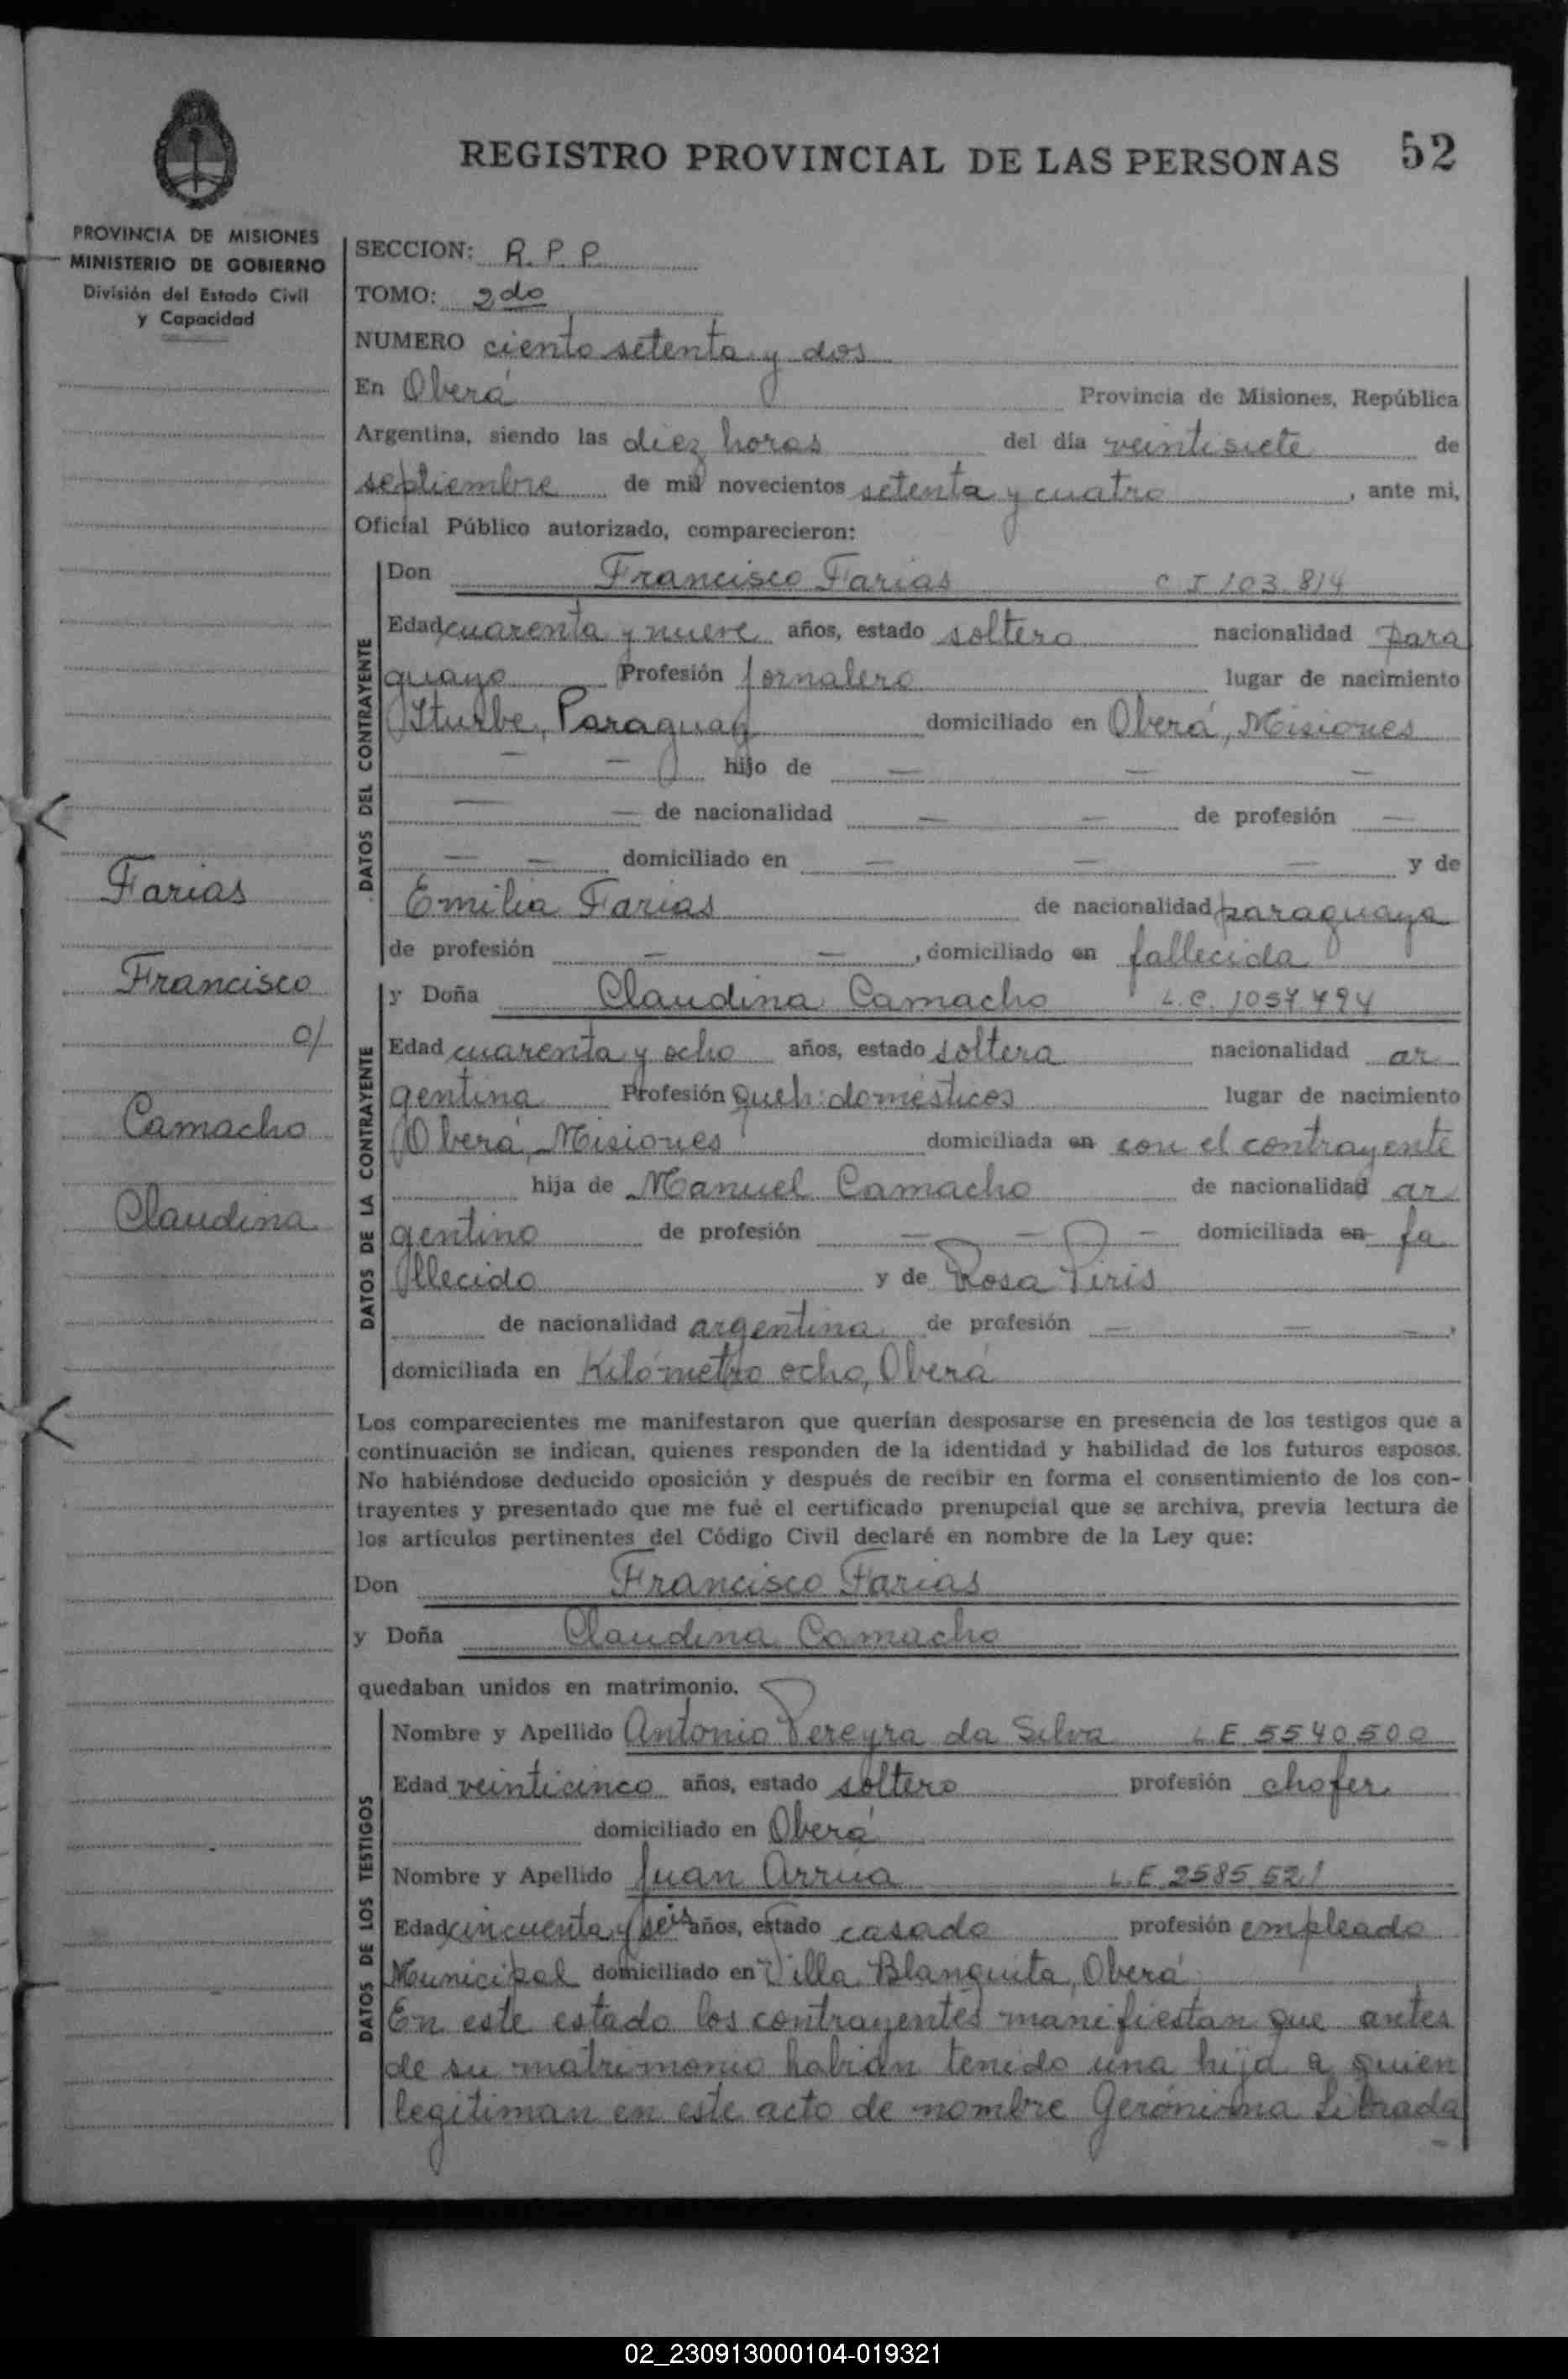 REGISTRO PROVINCIAL DE LAS PERSONAS 52
PROVINCIA DE MISIONES
MINISTERIO DE GOBIERNO
División del Estado Civil
y Capacidad
SECCION: R. P. P.
TOMO: 2do
NUMERO ciento setenta y dos
En Oberá Provincia de Misiones, República
Argentina, siendo las diez horas del día veintisiete de
septiembre de mil novecientos setenta y cuatro, ante mi,
Oficial Público autorizado, comparecieron:
DATOS DEL CONTRAYENTE
Don Francisco Farias C I 103.814
Edad cuarenta y nueve años, estado soltero nacionalidad para
guayo Profesión jornalero lugar de nacimiento
Iturbe, Paraguay domiciliado en Oberá, Misiones
— — hijo de — — —
— — de nacionalidad — — de profesión —
— — domiciliado en — — — y de
Emilia Farias de nacionalidad paraguaya
de profesión — —, domiciliado en fallecida
DATOS DE LA CONTRAYENTE
y Doña Claudina Camacho L.C. 1057494
Edad cuarenta y ocho años, estado soltera nacionalidad ar
gentina Profesión queh: domésticos lugar de nacimiento
Oberá, Misiones domiciliada en con el contrayente
hija de Manuel Camacho de nacionalidad ar
gentino de profesión — — — domiciliada en fa
llecido y de Rosa Piris
de nacionalidad argentina de profesión — — —,
domiciliada en Kilómetro ocho, Oberá
Farias
Francisco
c/
Camacho
Claudina
Los comparecientes me manifestaron que querían desposarse en presencia de los testigos que a
continuación se indican, quienes responden de la identidad y habilidad de los futuros esposos.
No habiéndose deducido oposición y después de recibir en forma el consentimiento de los con-
trayentes y presentado que me fué el certificado prenupcial que se archiva, previa lectura de
los artículos pertinentes del Código Civil declaré en nombre de la Ley que:
Don Francisco Farias
y Doña Claudina Camacho
quedaban unidos en matrimonio.
DATOS DE LOS TESTIGOS
Nombre y Apellido Antonio Pereyra da Silva L.E 5540500
Edad veinticinco años, estado soltero profesión chofer
domiciliado en Oberá
Nombre y Apellido Juan Arrúa L.E. 2585521
Edad cincuenta y seis años, estado casado profesión empleado
Municipal domiciliado en Villa Blanquita, Oberá
En este estado los contrayentes manifiestan que antes
de su matrimonio habían tenido una hija a quien
legitiman en este acto de nombre Gerónima Librada
02_230913000104-019321